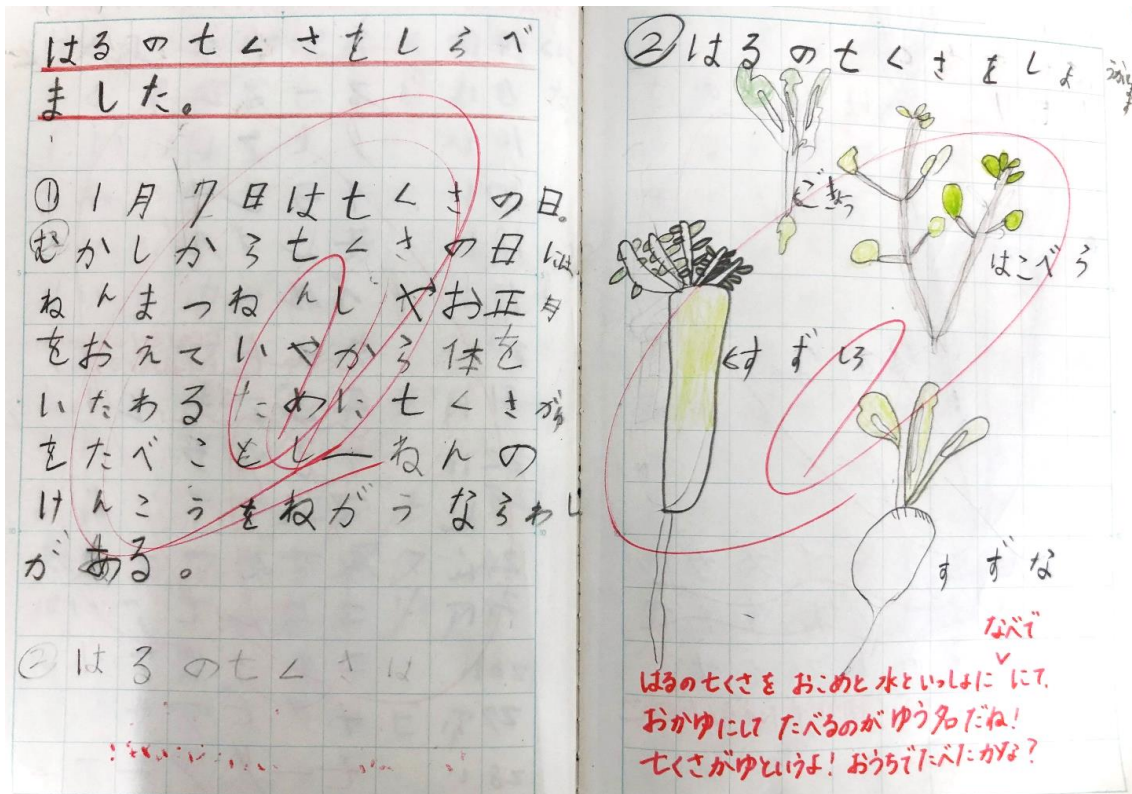 はるの七くさをしらべ
ました。
① 1月7日は七くさの日。
むかしから七くさの日には
ねんまつねんしやお正月
をおえていやから体を
いたわるために七くさがゆ
をたべことし一ねんの
けんこうをねがうならわし
がある。
② はるの七くさは
② はるの七くさをしょ
うかいし
ます
ごぎょう
はこべら
すずしろ
すずな
なべで
はるの七くさを おこめと 水といっしょに にて、
おかゆにして たべるのが ゆう名だね!
七くさがゆというよ! おうちでたべたかな?